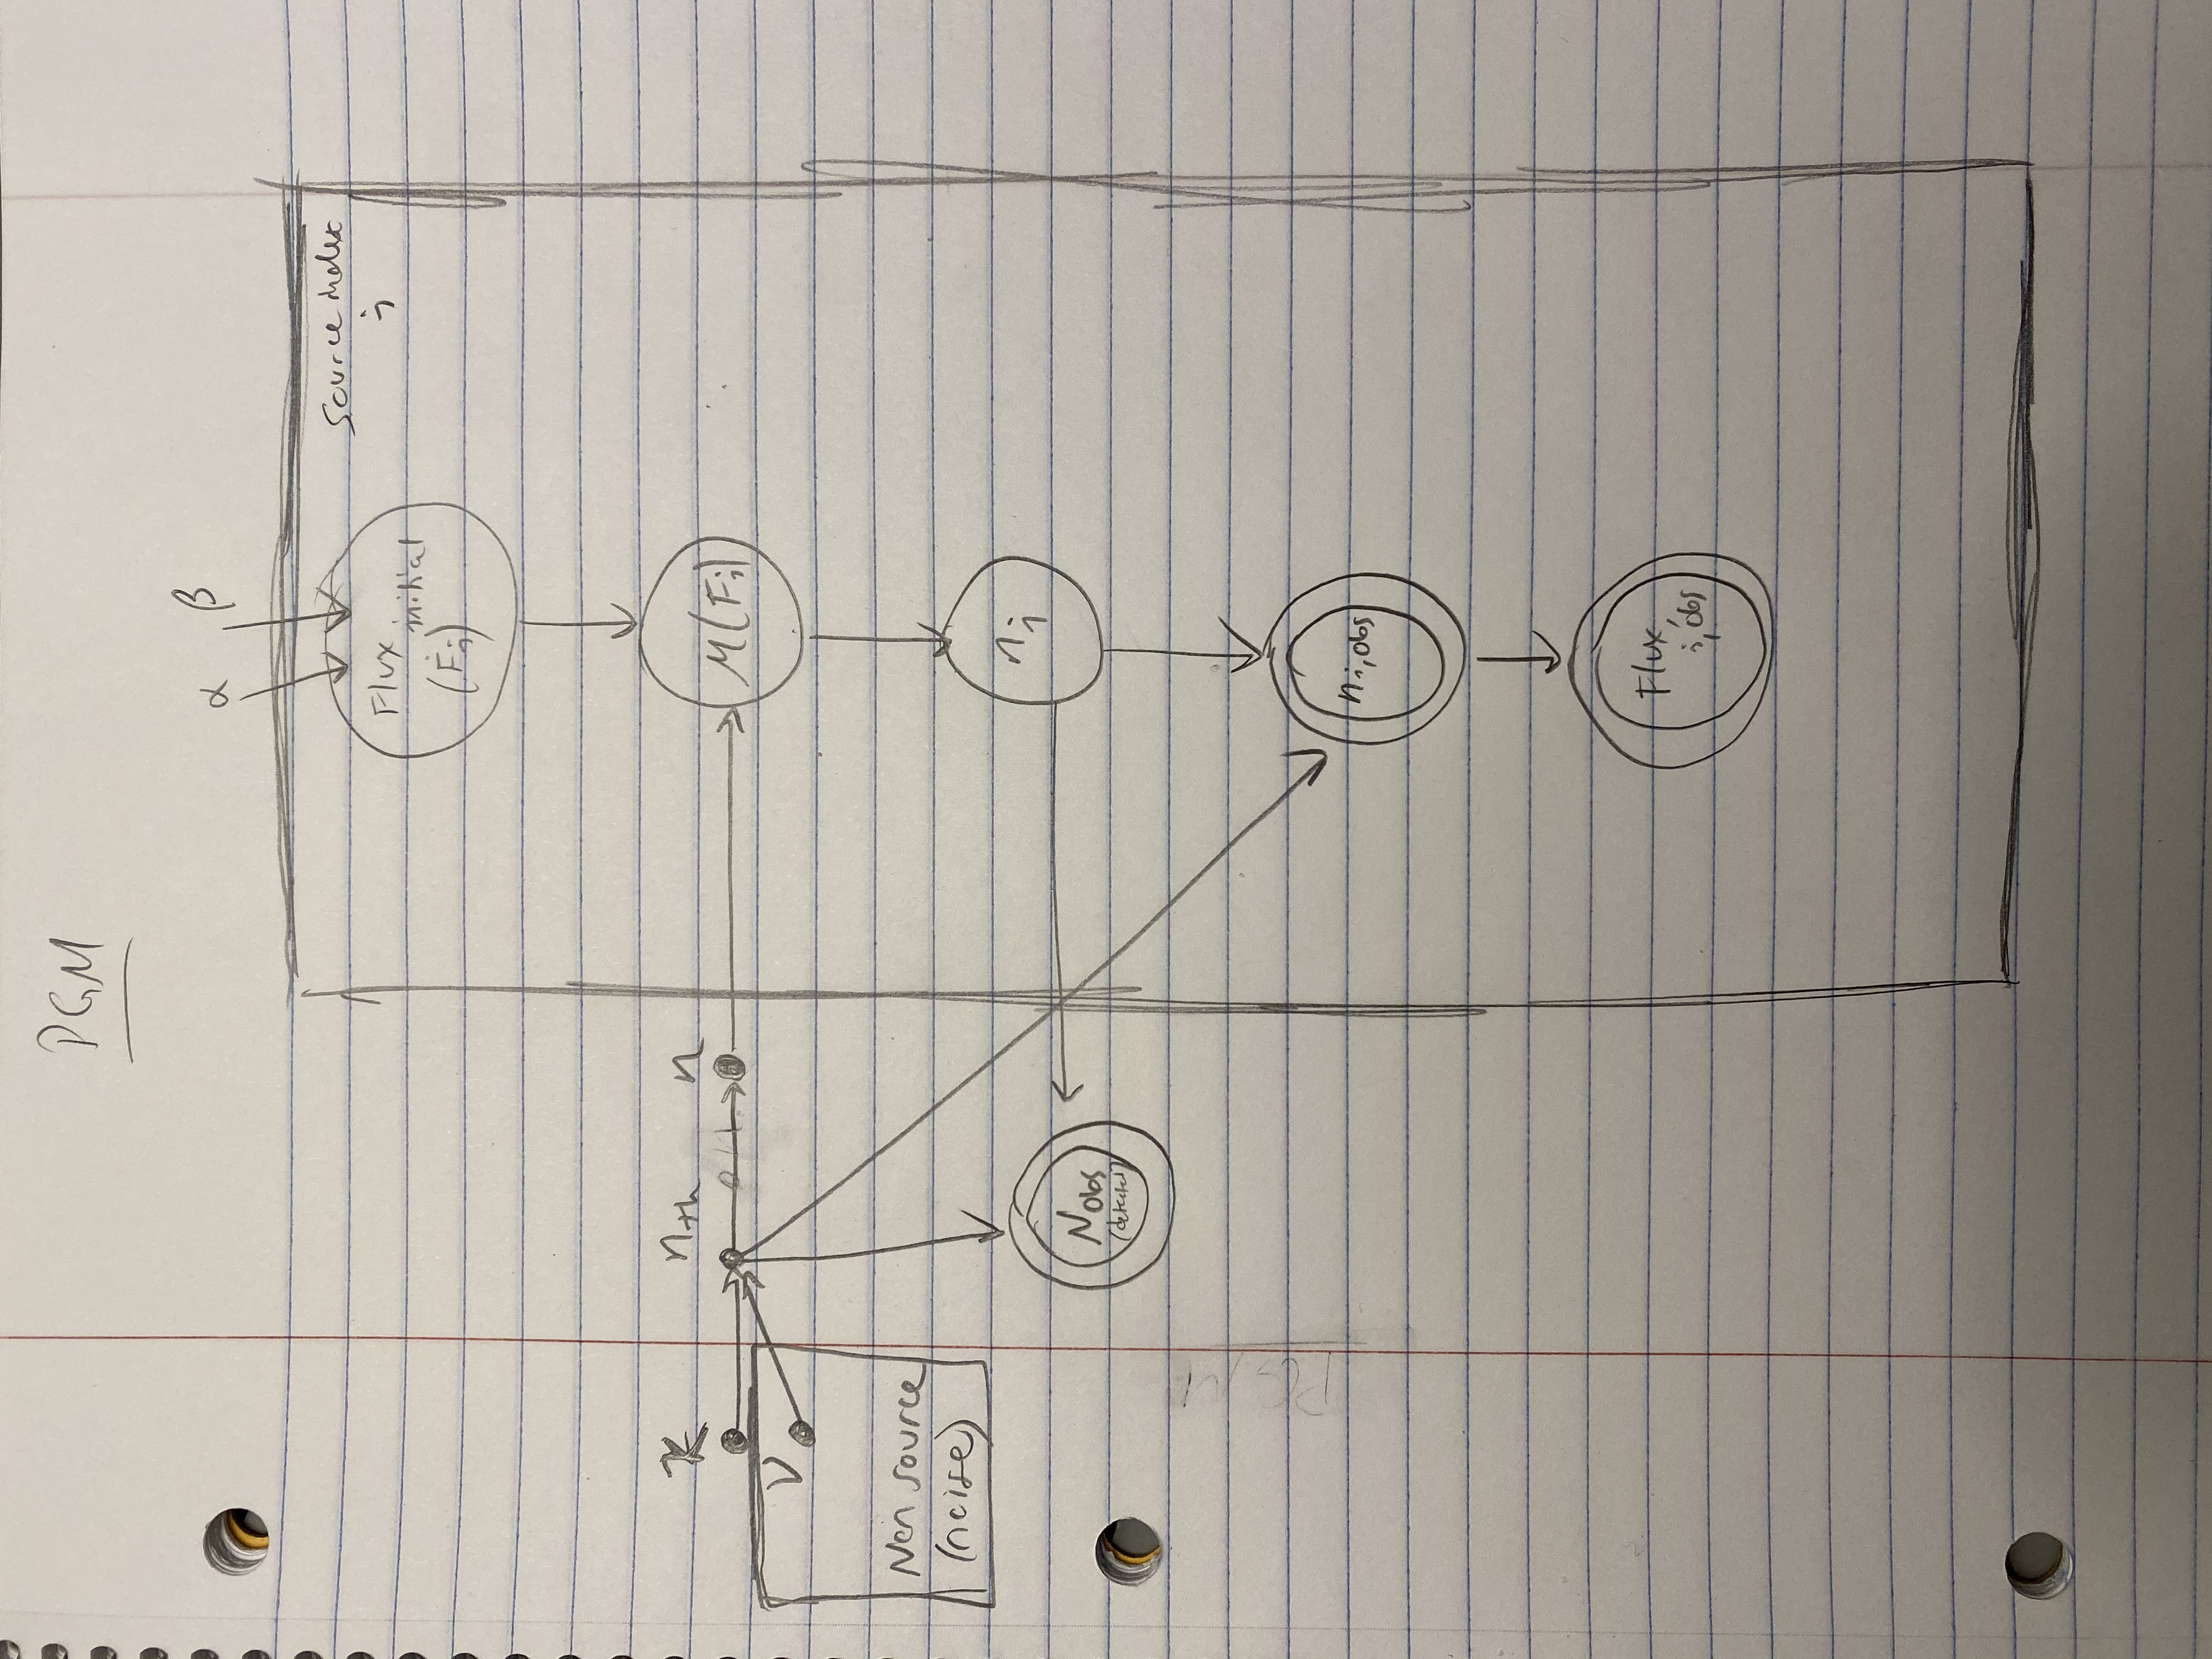 PGM
α β
source index
i
Flux initial
(Fi)
nth n
μ(Fi)
ν
Non source
(noise)
ni
Nobs
(detected)
PGM
ni,obs
Flux i,obs